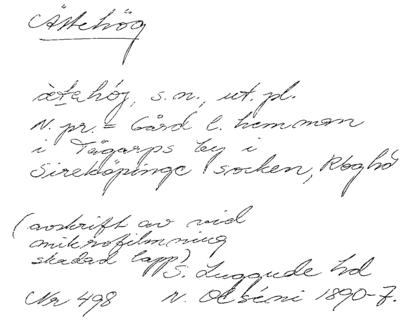 Ättehög
ätahöj, s.n., ut. pl.
N. pr. = Gård l. hemman
i Tågarps by i
Sireköpinge socken, Røghd
(avskrift av vid
mikrofilmning
skadad lapp)
S. Luggude hd
Nr 498 N. Olséni 1890-7.